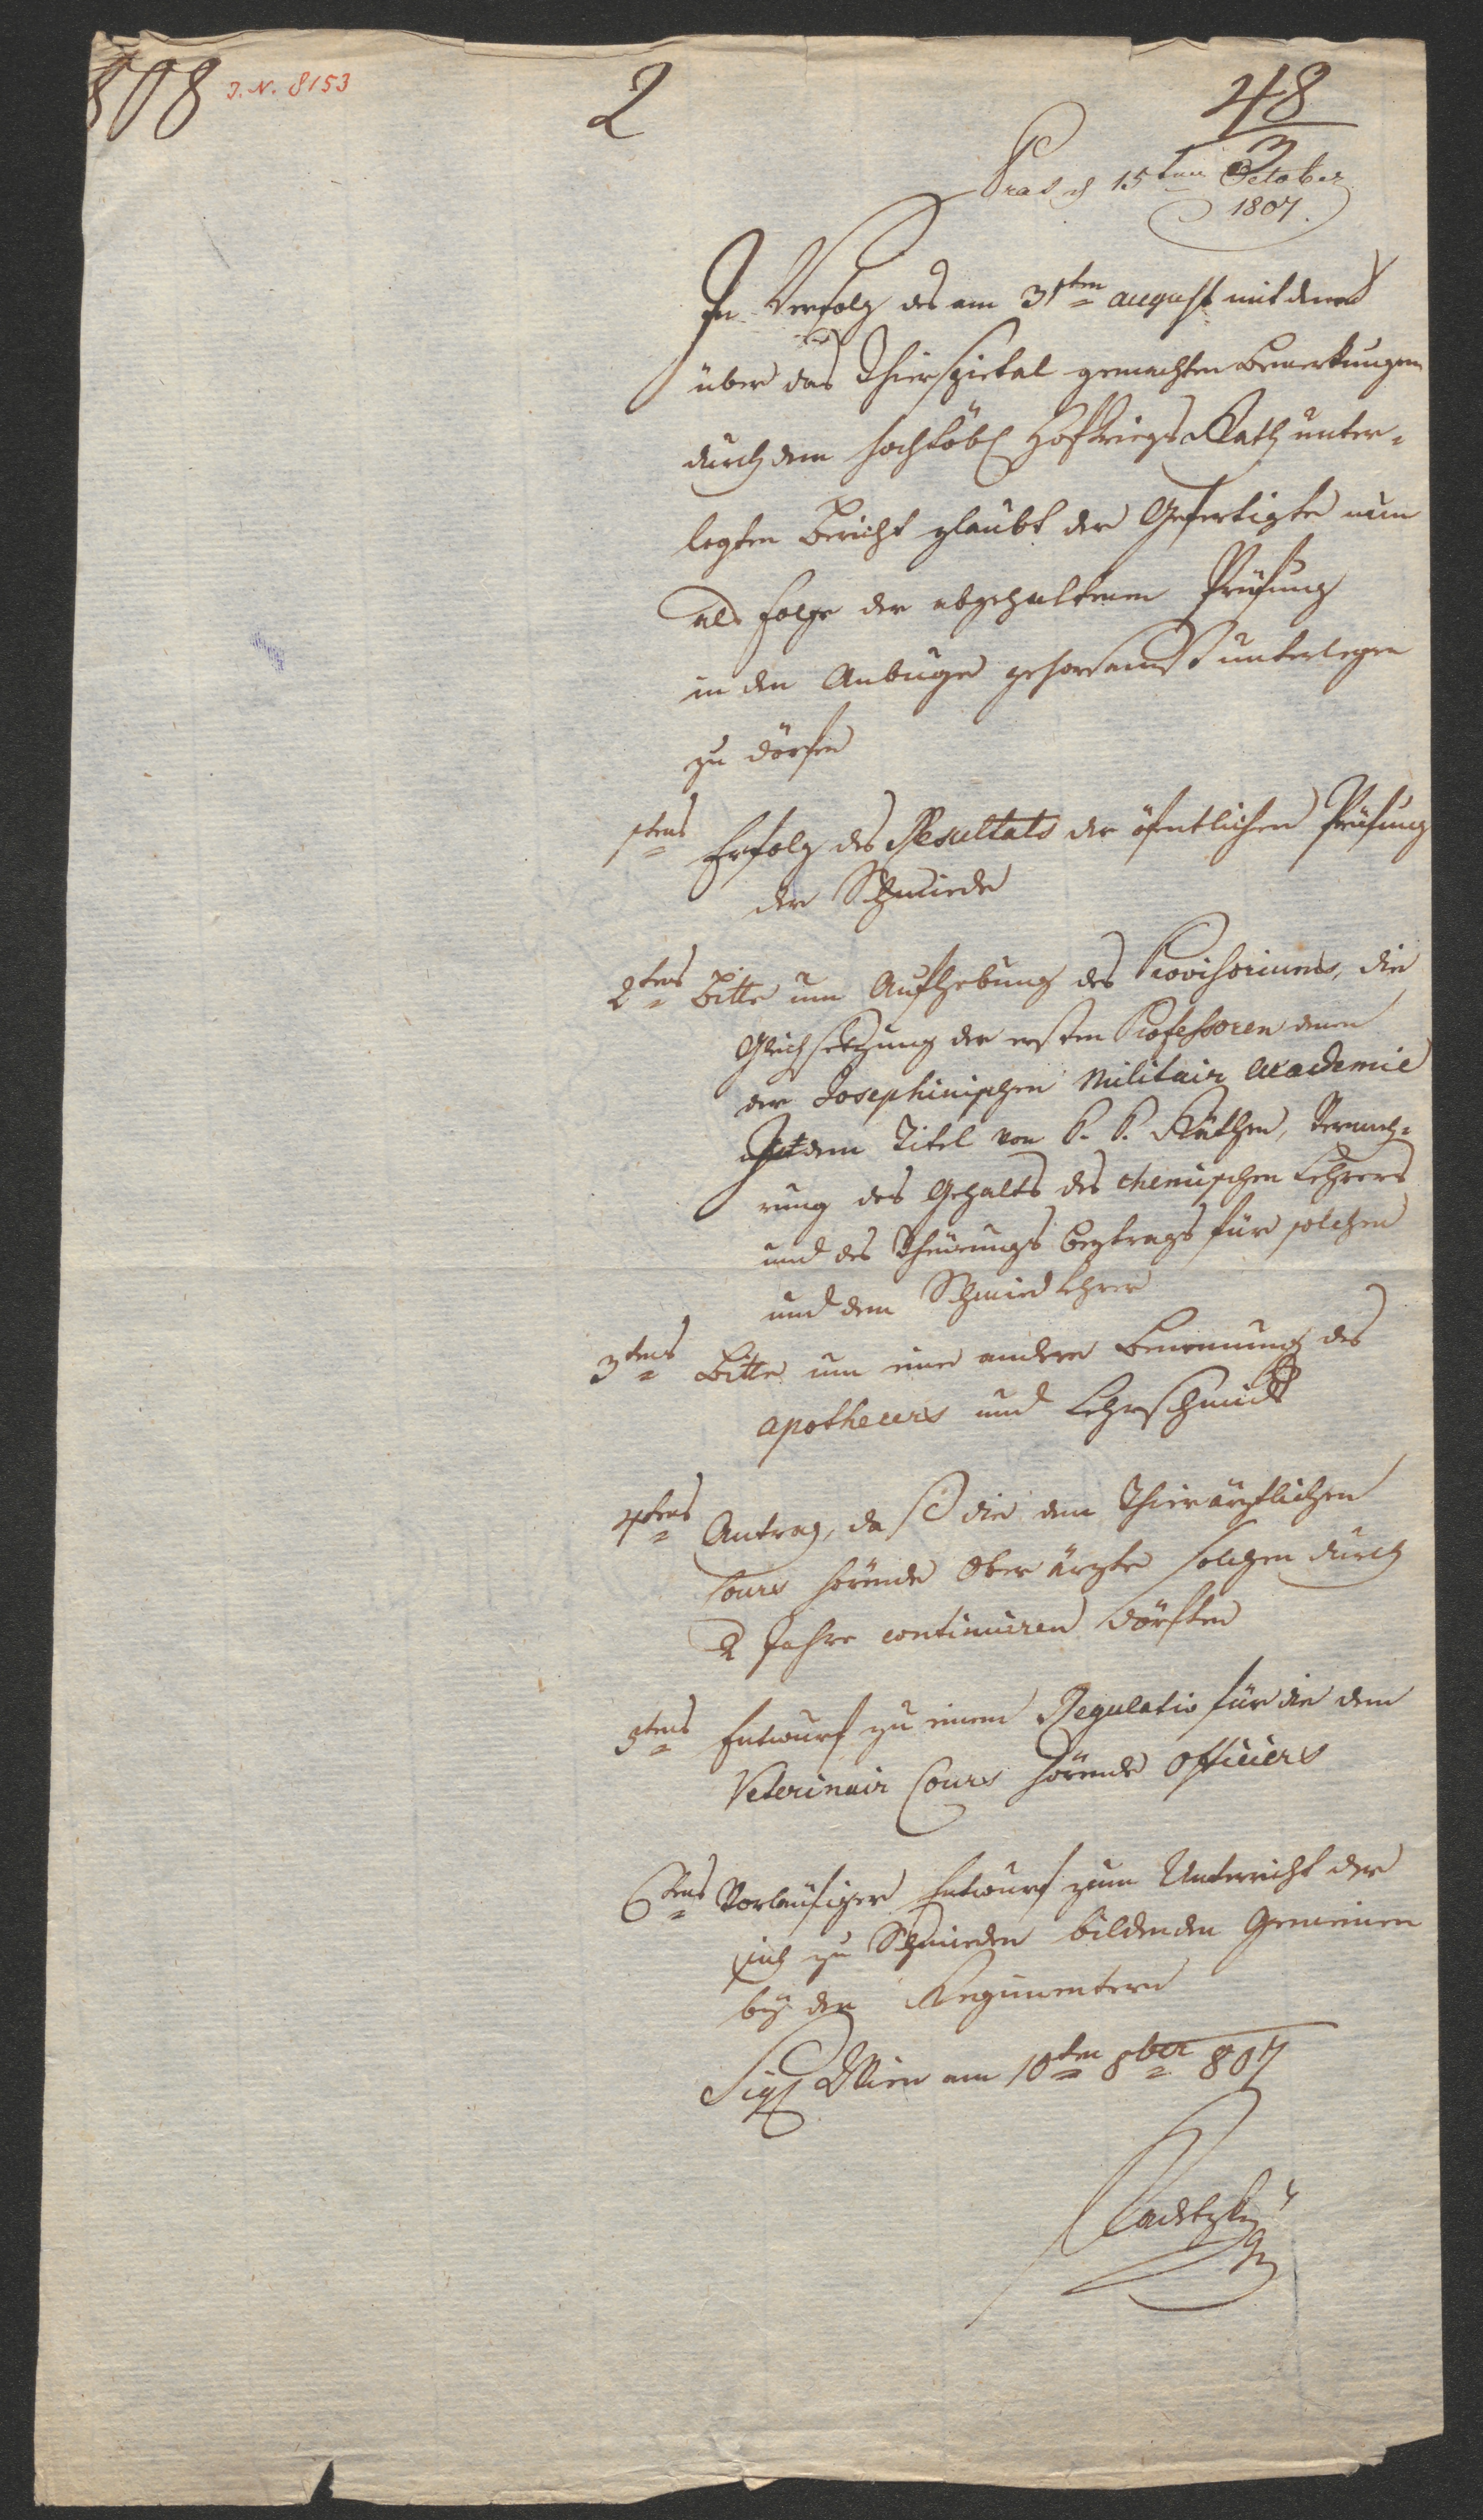 808 J. N. 8153 2 48
3
Pras d 15ten October
1807.
In Verfolg des am 31ten august mit denen
über das Thierspietal gemachten Bemerkungen
durch dem hochlöbl HofkriegsRath unter-
legten Bericht glaubt der Gefertigte nun
als Folge der abgehaltenen Prüfung
in den Anbuge gehorsamst unterlegen
zu dörfen
1tens Erfolg des Resultats der öfentlichen Prüfung
der Schmiede
2tens Bitte um Aufhebung des Provisoriums, die
Gleichsetzung der ersten Professoren denen
der Josephinischen Militair Academie
dem Titel von K. K. Räthen, Vermeh-
rung des Gehalts des chemischen Lehrers
und des Theuerungs beytrags für solchen
und dem Schmied Lehrer
3tens Bitte um eine andere Benennung des
apothecers und Lehrschmids
4tens Antrag, daß die den Thierärztlichen
Cours hörende Oberärzte solchen durch
2 Jahre continuiren dörften
5tens Entwurf zu einem Regulativ für die den
Veterinair Cours hörende Officiers
6tens Vorläufiger Entwurf zum Unterricht der
sich zu Schmieden bildenden Gemeinen
bey den Regimentern
Sigl Wien am 10ten 8ber 807
Radetzky